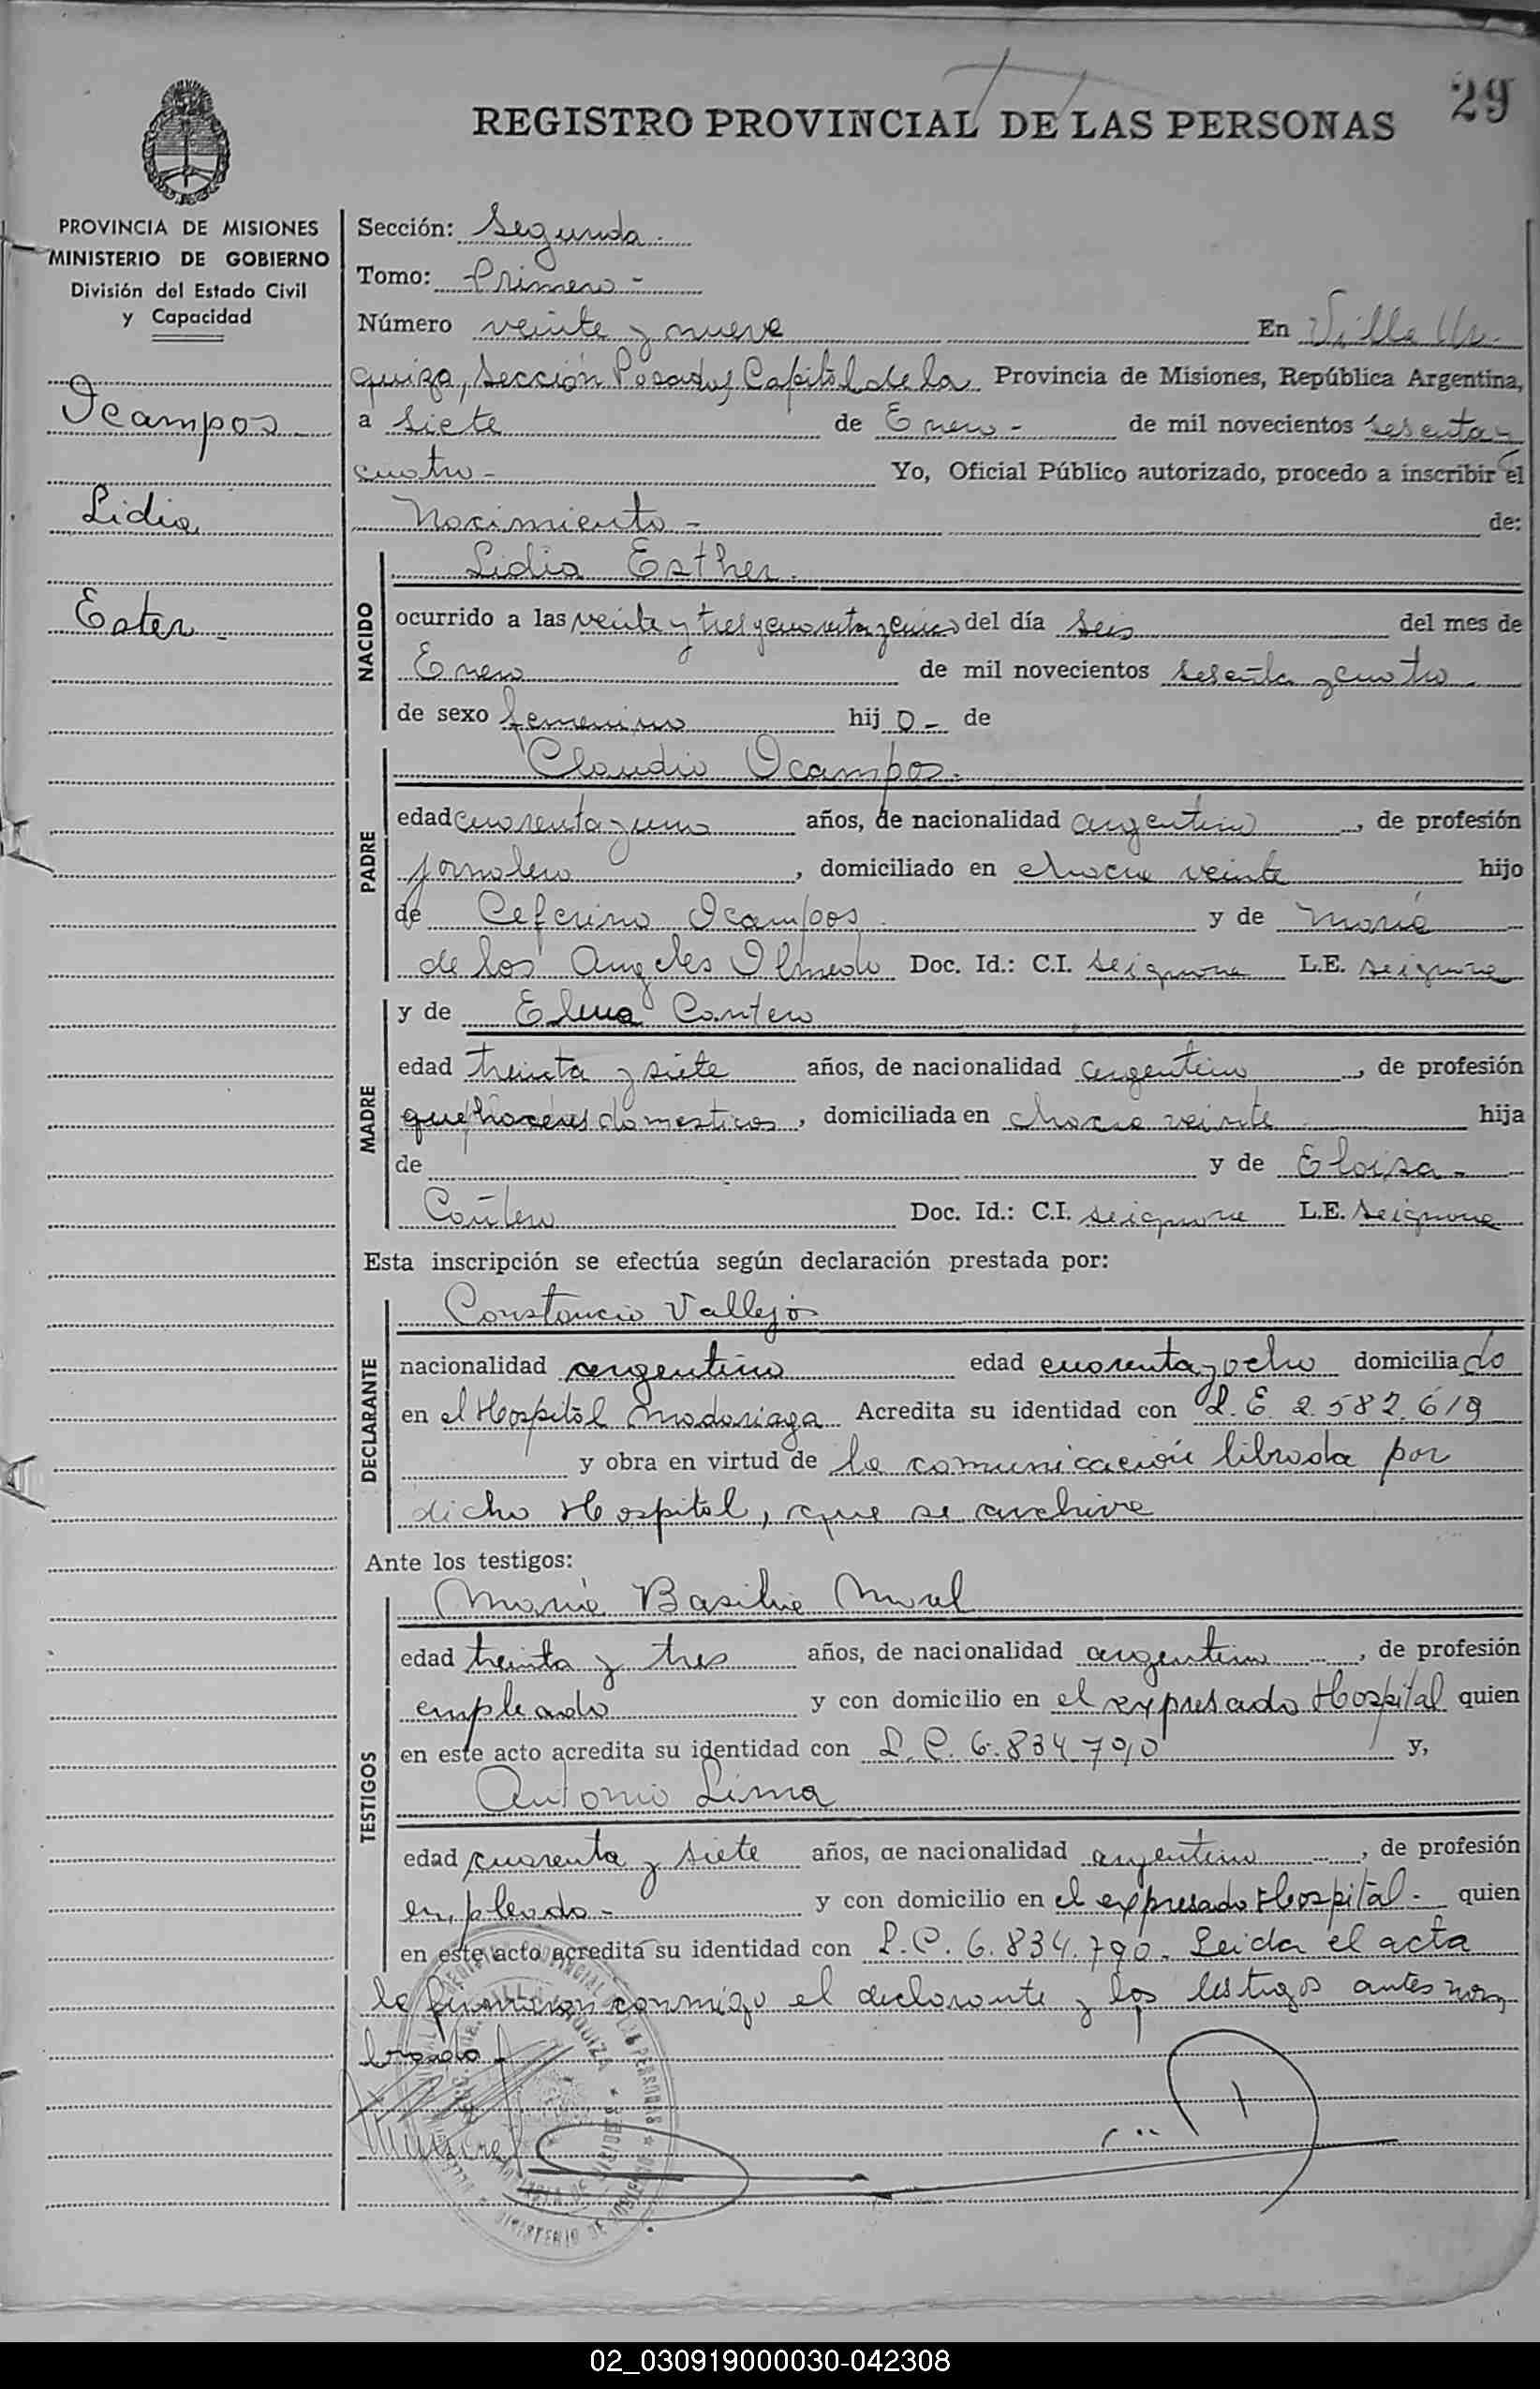 29
REGISTRO PROVINCIAL DE LAS PERSONAS
PROVINCIA DE MISIONES
MINISTERIO DE GOBIERNO
División del Estado Civil
y Capacidad
Ocampos
Lidia
Ester -
Sección: Segunda -
Tomo: Primero -
Número veinte y nueve En Villa Ur-
quiza, Sección Posadas Capital de la Provincia de Misiones, República Argentina,
a siete de Enero - de mil novecientos sesenta y
cuatro - Yo, Oficial Público autorizado, procedo a inscribir el
Nacimiento - de:
NACIDO
Lidia Esther -
ocurrido a las veinte y tres y cuarenta y cinco del día seis del mes de
Enero de mil novecientos sesenta y cuatro -
de sexo femenino hij o - de
PADRE
Claudio Ocampos -
edad cuarenta y uno años, de nacionalidad argentino, de profesión
jornalero, domiciliado en chacra veinte hijo
de Ceferino Ocampos y de María
de los Angeles Olmedo Doc. Id.: C.I. se ignora L.E. se ignora
MADRE
y de Elena Cantero
edad treinta y siete años, de nacionalidad argentina, de profesión
quehaceres domesticos, domiciliada en chacra veinte hija
de y de Eloisa -
Cantero Doc. Id.: C.I. se ignora L.E. se ignora
Esta inscripción se efectúa según declaración prestada por:
DECLARANTE
Constancio Vallejos
nacionalidad argentino edad cuarenta y ocho domicilia do
en el Hospital Madariaga Acredita su identidad con L.E. 2.582.619
y obra en virtud de la comunicación librada por
dicho Hospital, que se archiva
Ante los testigos:
TESTIGOS
María Basilia Moral
edad treinta y tres años, de nacionalidad argentina, de profesión
empleada y con domicilio en el expresado Hospital quien
en este acto acredita su identidad con L.C. 6.834.790 y,
Antonio Lima
edad cuarenta y siete años, de nacionalidad argentino, de profesión
empleado - y con domicilio en el expresado Hospital - quien
en este acto acredita su identidad con L.C. 6.834.790 - Leida el acta
la firmaron conmigo el declarante y los testigos antes nom
brado
02_030919000030-042308